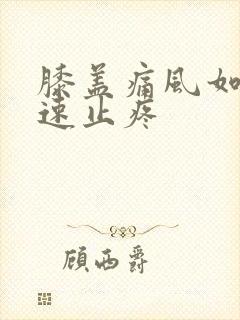 膝盖痛风如
速止疼
顾西爵